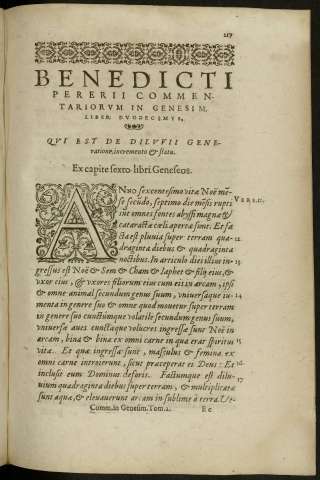 217
BENEDICTI
PERERII COMMEN-
TARIORVM IN GENESIM,
LIBER DVODECIMVS,
QVI EST DE DILVVII GENE-
ratione, incremento & statu.
Ex capite sexto libri Geneseos.
ANNO sexcentesimo vitæ Noë mē-
se secūdo, septimo die mēsis rupti VERS. 11.
sūt omnes fontes abyssi magnæ &
cataractæ cœli apertæ sunt: Et fa-
cta est pluuia super terram qua- 12
draginta diebus & quadraginta
noctibus. In articulo diei illius in- 13
gressus est Noë & Sem & Cham & Iaphet & filij eius, &
vxor eius, & vxores filiorum eius cum eis in arcam, ipsi
& omne animal secundum genus suum, vniuersáque iu-
menta in genere suo & omne quod mouetur super terram
in genere suo cunctúmque volatile secundum genus suum,
vniuersæ aues cunctæque volucres ingressæ sunt ad Noë in
arcam, bina & bina ex omni carne in qua erat spiritus 15
vitæ. Et quæ ingressæ sunt, masculus & femina ex
omni carne introierunt, sicut præceperat ei Deus: Et 16
inclusit eum Dominus deforis. Factumque est dilu- 17
uium quadraginta diebus super terram, & multiplicatæ
sunt aquæ, & eleuauerunt arcam in sublime à terra. Ve-
Comm. in Genesim. Tom. 2. Ee